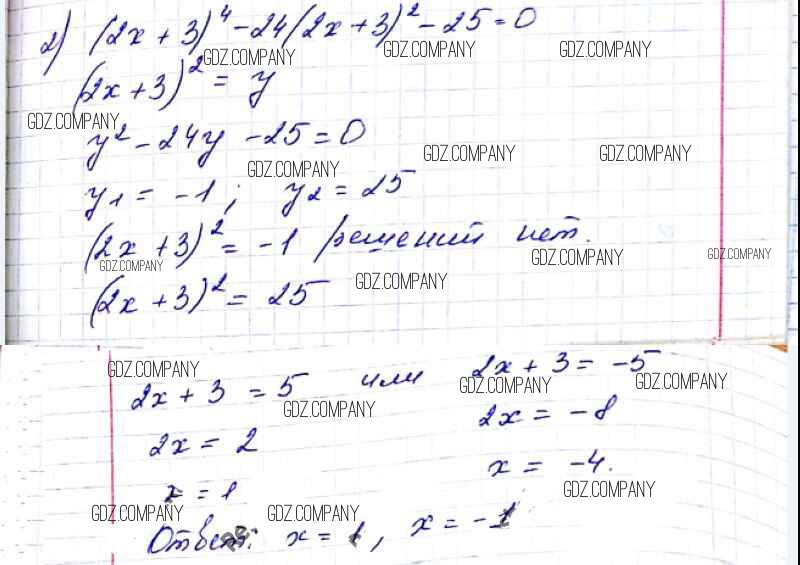 2) (2x + 3)⁴ - 24(2x + 3)² - 25 = 0
GDZ.COMPANY GDZ.COMPANY GDZ.COMPANY
(2x + 3)² = y
GDZ.COMPANY
y² - 24y - 25 = 0
GDZ.COMPANY GDZ.COMPANY GDZ.COMPANY
y₁ = -1; y₂ = 25
(2x + 3)² = -1 решений нет.
GDZ.COMPANY GDZ.COMPANY GDZ.COMPANY
(2x + 3)² = 25
GDZ.COMPANY
GDZ.COMPANY
2x + 3 = 5 или 2x + 3 = -5
GDZ.COMPANY GDZ.COMPANY GDZ.COMPANY
2x = 2 2x = -8
x = 1 x = -4.
GDZ.COMPANY GDZ.COMPANY GDZ.COMPANY
Ответ: x = 1, x = -1